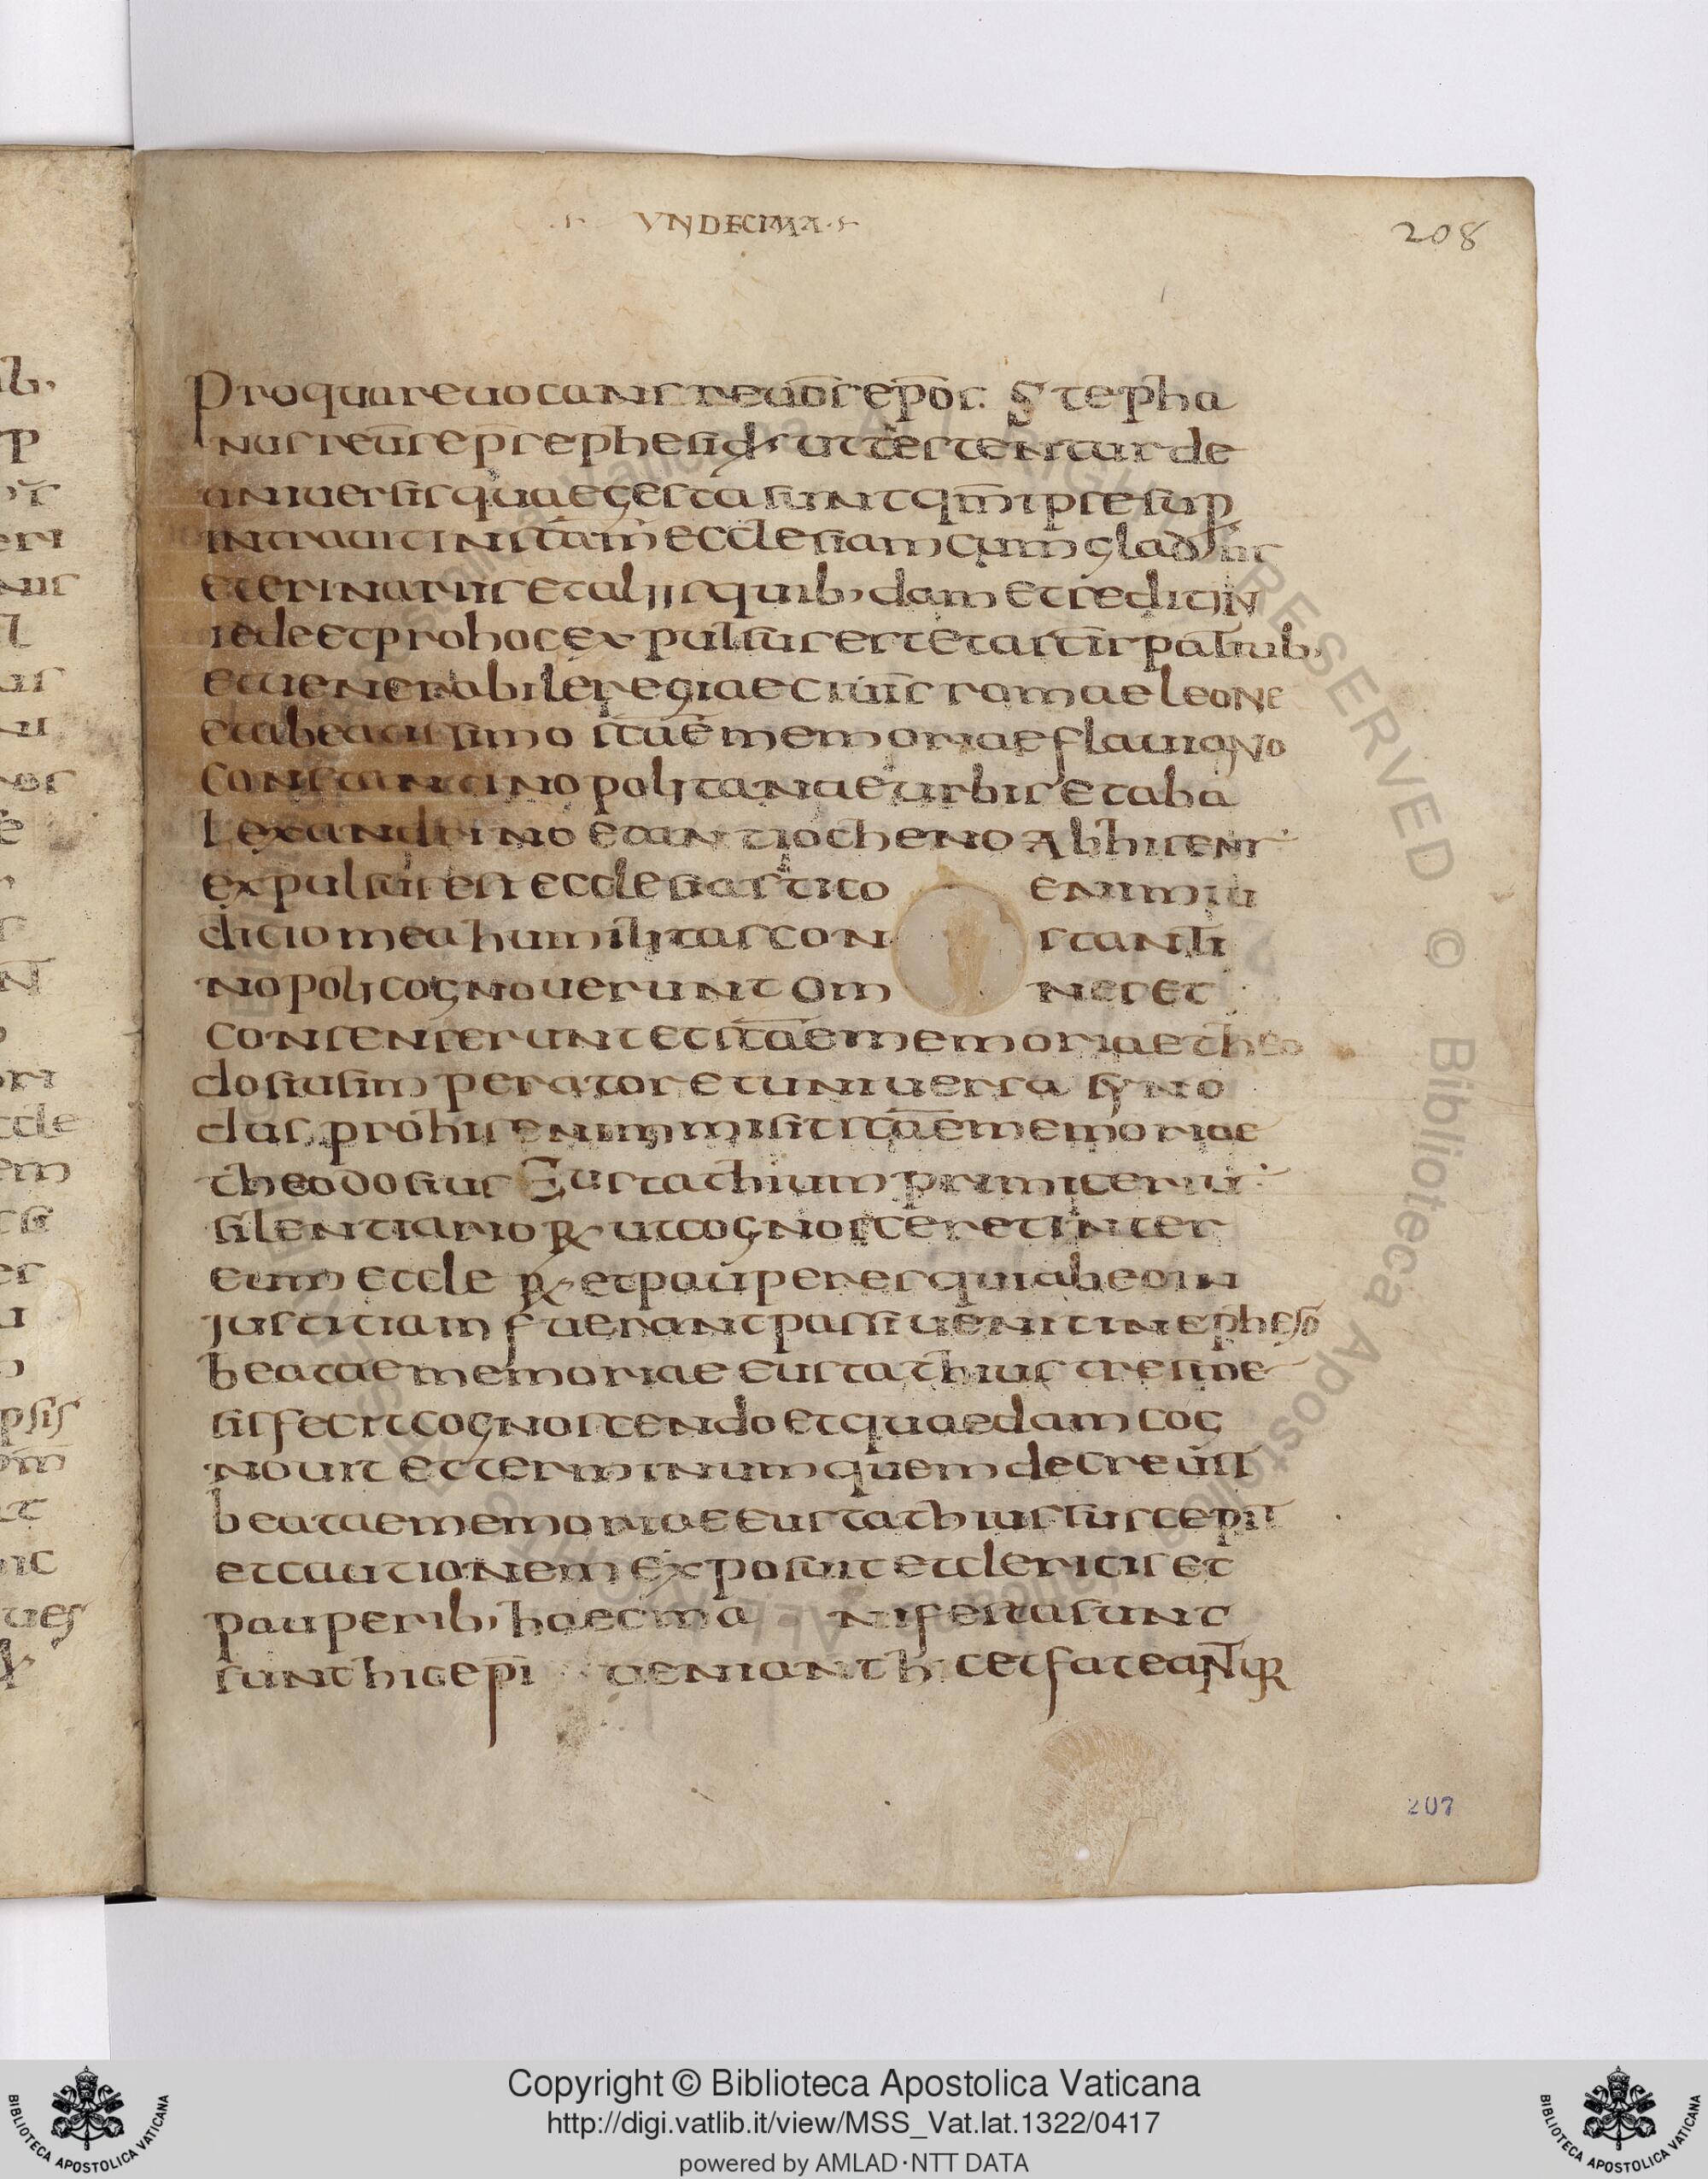 VNDECIMA
208
Pro qua re uocans reuos epos. Stepha
nus reūs eps ephesi dx ut testentur de
uniuersis quae gesta sunt qm̄ ipse sup
intrauit in scam ecclesiam cum gladiis
et erinariis et aliis quib, dam et sedit in
sede et pro hoc expulsus est et a scis patrib,
et uenerabile regiae ciuit romae leone
et a beatissimo scae memoriae flauiano
constantinopolitanae urbis et ab a
lexandrino et antiocheno Ab his ens
expulsus est ecclesiastico enim iu
dicio mea humilitas con stanti
nopoli cognouerunt om nes et
consenserunt et scae memoriae theo
dosius imperator et uniuersa syno
dus pro his enim misit scae memoriae
theodosius Eustathium primiceriu
silentiarioR ut cognosceret inter
eum eccle R et pauperes qui ab eo in
iustitiam fuerant passi uenit in epheso
beatae memoriae eustathius tres me
sis fecit cognoscendo et quaedam cog
nouit et terminum quem decreuit
beatae memoriae eustathius suscepit
et cautionem exposuit et clericis et
pauperib, haec ma nifesta sunt
sunt hic epi ueniant h c et fateaNtuR
207
Copyright © Biblioteca Apostolica Vaticana
http://digi.vatlib.it/view/MSS_Vat.lat.1322/0417
powered by AMLAD·NTT DATA
BIBLIOTECA APOSTOLICA VATICANA
BIBLIOTECA APOSTOLICA VATICANA